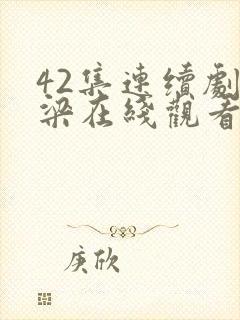 42集連續劇
梁在綫觀看
庚欣